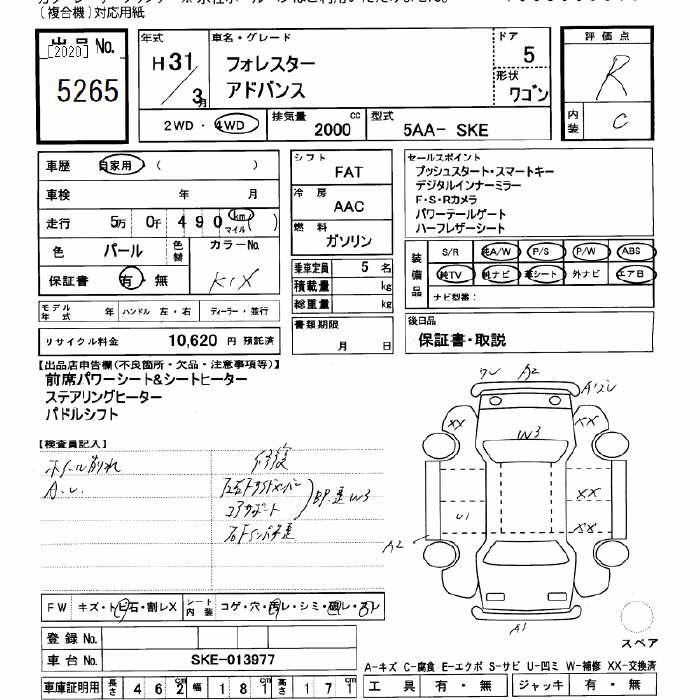 (複合機)対応用紙
出品No.
[2020]
5265
年式
H31
3月
車名・グレード
フォレスター
アドバンス
ドア
5
形状
ワゴン
評価点
R
内装
C
2WD・4WD
排気量
2000 cc
型式
5AA- SKE
車歴
自家用・( )
車検
年 月
走行
5万 0千 490 km マイル ( )
色
パール
色替
カラーNo.
K1X
保証書
有・無
モデル年式
年
ハンドル 左・右
ディーラー・並行
リサイクル料金 10,620 円 預託済
シフト
FAT
冷房
AAC
燃料
ガソリン
乗車定員 5 名
積載量 kg
総重量 kg
書類期限
月 日
セールスポイント
プッシュスタート・スマートキー
デジタルインナーミラー
F・S・Rカメラ
パワーテールゲート
ハーフレザーシート
装備品
S/R 純A/W P/S P/W ABS
純TV 純ナビ 革シート 外ナビ エアB
ナビ型番:
後日品
保証書・取説
【出品店申告欄(不良箇所・欠品・注意事項等)】
前席パワーシート&シートヒーター
ステアリングヒーター
パドルシフト
【検査員記入】
ホイール割れ
A.U.
修復
コアサポート
W3
FW キズ・トビ石・割レX
シート内装
コゲ・穴・汚レ・シミ・破レ・スレ
登録No.
車台No. SKE-013977
車庫証明用 長さ 462 cm 幅 181 cm 高さ 171
ワレ
A2
A1ズレ
XX
XX
W3
XX
U1
XX
A2
A1
スペア
A-キズ C-腐食 E-エクボ S-サビ U-凹ミ W-補修 XX-交換済
工具 有・無 ジャッキ 有・無